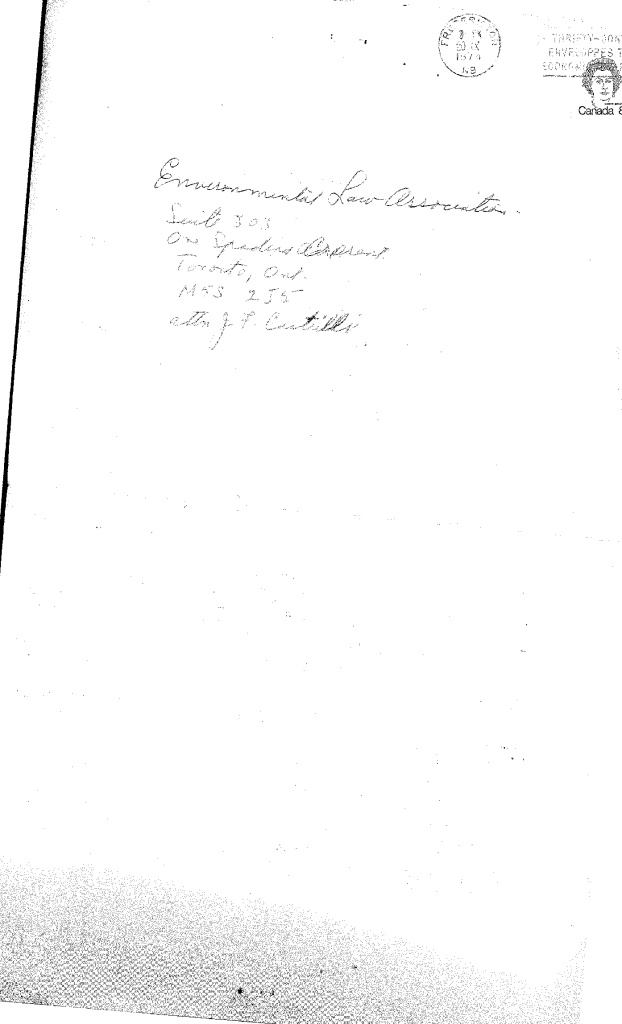 FREDERICTON
20 IX
197
NB
THRIFTY-
ENVELOPPES
ECONOM
Canada 8
Environmental Law Association.
Suite 303
One Spadina Crescent
Toronto, Ont.
M5S 2J5
attn J. F. Castilli